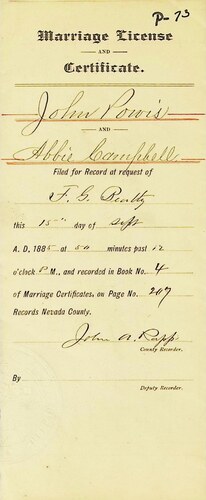 P-73
Marriage License
AND
Certificate.
John Powis
AND
Abbie Campbell
Filed for Record at request of
F. G. Beatty
this 15" day of Sept
A. D. 1885 at 50 minutes past 12
o'clock P M., and recorded in Book No. 4
of Marriage Certificates, on Page No. 207
Records Nevada County.
John A. Rapp
County Recorder.
By
Deputy Recorder.